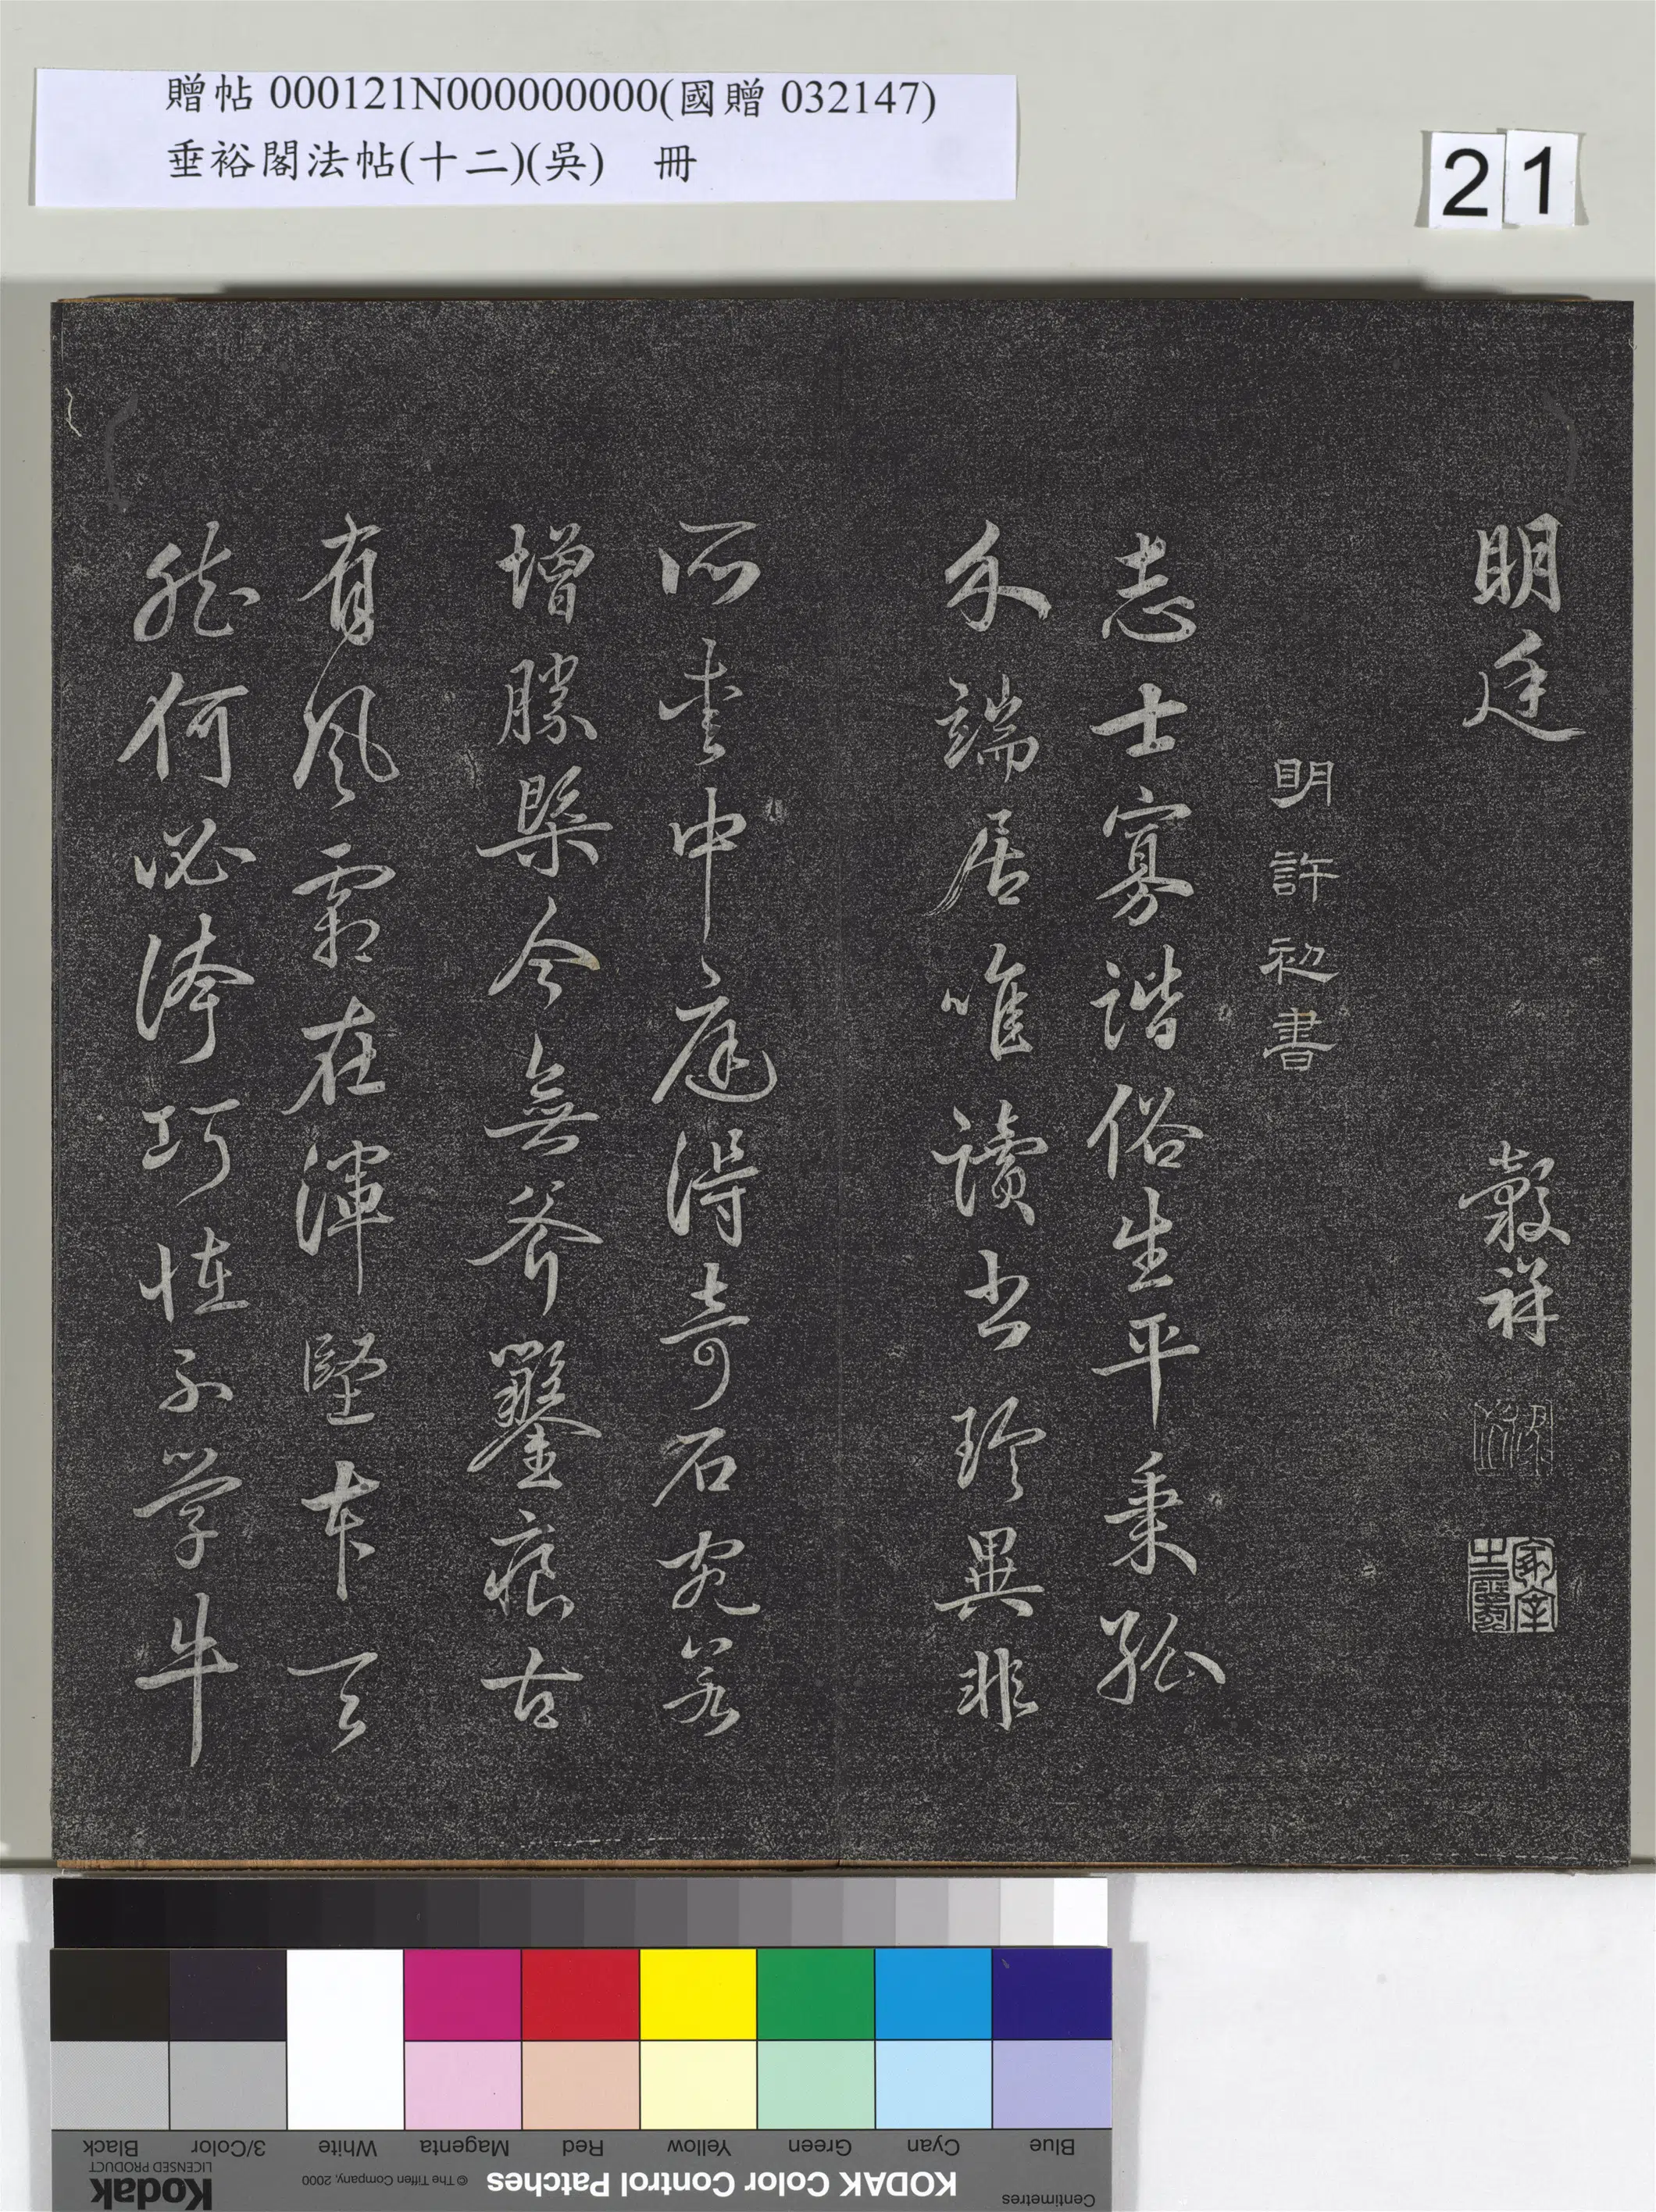 贈帖 000121N000000000(國贈 032147)
垂裕閣法帖(十二)(吳) 冊
21
明廷
穀祥
明許初書
志士寡諧俗生平秉孤
介端居唯讀書珍異非
所重中庭得奇石宛若
增勝槩今無斧鑿痕古
有風霜在渾堅本天
然何必誇巧怪不學牛
Blue
Cyan
Green
Yellow
Red
Magenta
White
3/Color
Black
Centimetres
KODAK Color Control Patches
© The Tiffen Company, 2000
Kodak
LICENSED PRODUCT